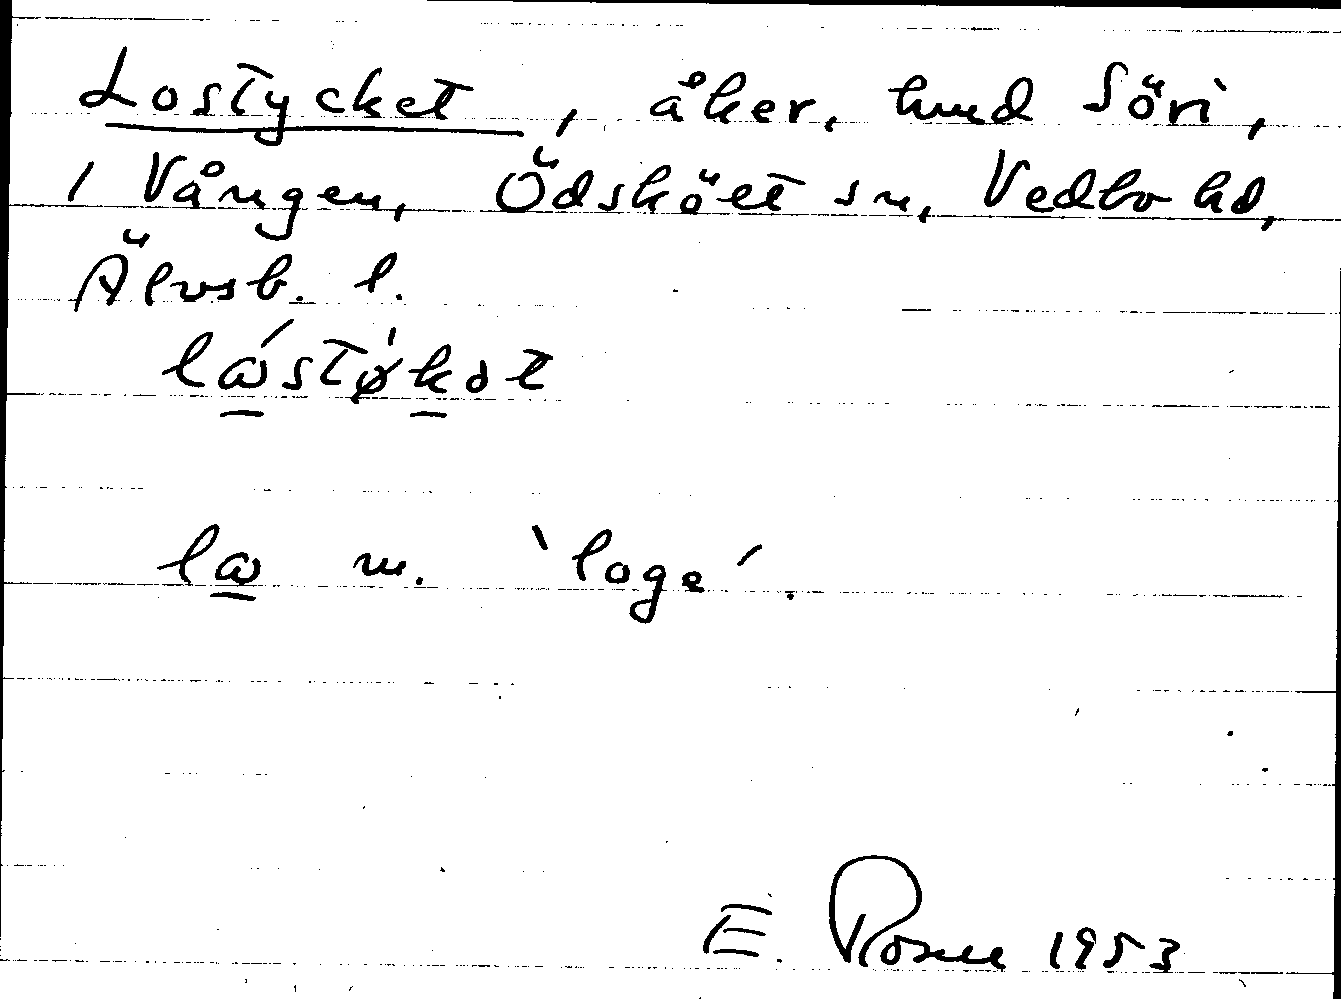 Lostycket, åker, hmd Söri,
1 Vången, Ödskölt sn, Vedbo hd,
Älvsb. l.
lɷ́stø̀kət
lɷ m. ‵loge′.
E. Rosell 1953